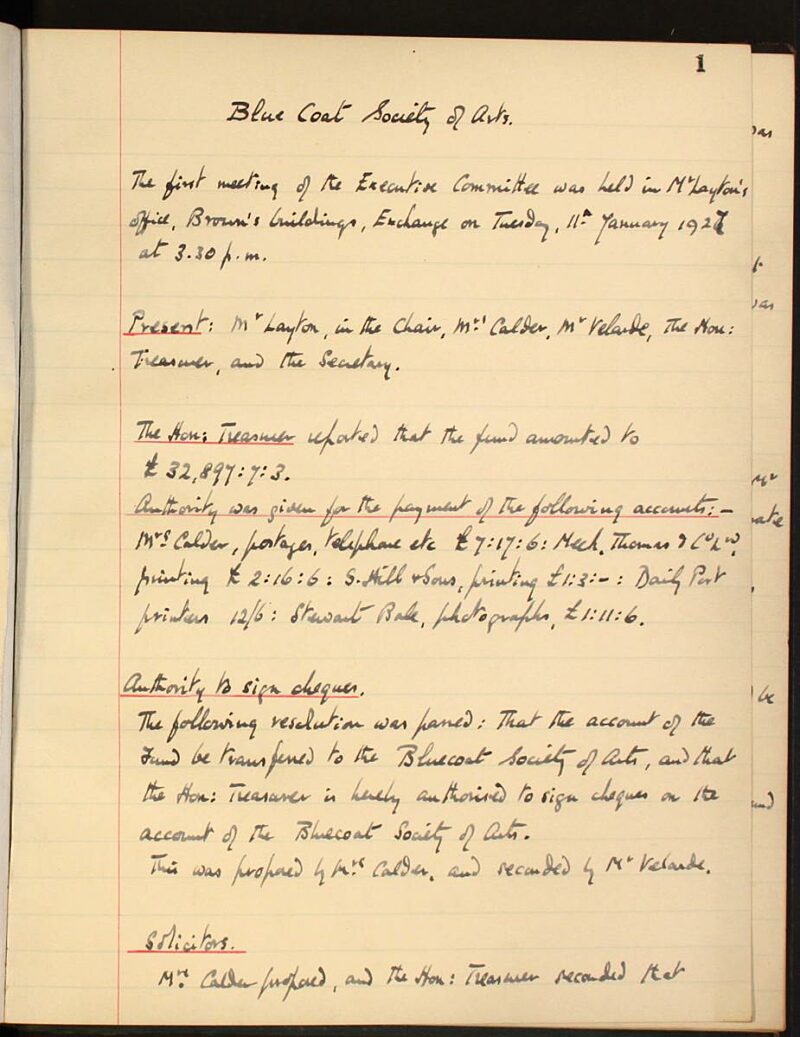 1
Blue Coat Society of Arts.
The first meeting of the Executive Committee was held in Mr Layton's
office, Brown's buildings, Exchange on Tuesday, 11th January 1927
at 3.30 p.m.
Present: Mr Layton, in the Chair, Mrs Calder, Mr Velarde, The Hon:
Treasurer, and the Secretary.
The Hon: Treasurer reported that the fund amounted to
£32,897:7:3.
Authority was given for the payment of the following accounts:-
Mrs Calder, postages, telephone etc £7:17:6: Meek, Thomas & Co Ld,
printing £2:16:6: S. Hill & Sons, printing £1:3:-: Daily Post
printers 12/6: Stewart Bale, photographs, £1:11:6.
Authority to sign cheques.
The following resolution was passed: That the account of the
Fund be transferred to the Bluecoat Society of Arts, and that
the Hon: Treasurer is hereby authorised to sign cheques on the
account of the Bluecoat Society of Arts.
This was proposed by Mrs Calder, and seconded by Mr Velarde.
Solicitors.
Mrs Calder proposed, and the Hon: Treasurer seconded that